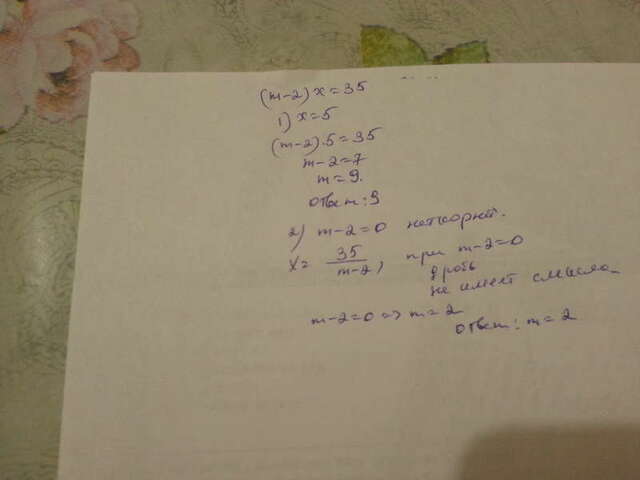 (m-2)x=35
1) x=5
(m-2)·5=35
m-2=7
m=9.
Ответ: 9
2) m-2=0 нет корней.
x= 35/m-2, при m-2=0
дробь
не имеет смысла
m-2=0 => m=2
Ответ: m=2